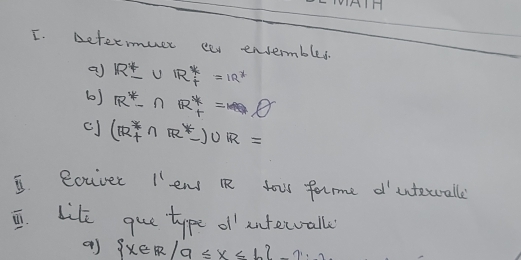 DE MATH
I. Determiner ces ensembles.
a) ℝ*₋ ∪ ℝ*₊ = ℝ*
b) ℝ*₋ ∩ ℝ*₊ = ∅
c) (ℝ*₊ ∩ ℝ*₋) ∪ ℝ =
II. Ecrivez l'ens ℝ sous forme d'intervalle
III. Dite que type d'intervalle
a) {x∈ℝ/a ≤ x ≤ b}